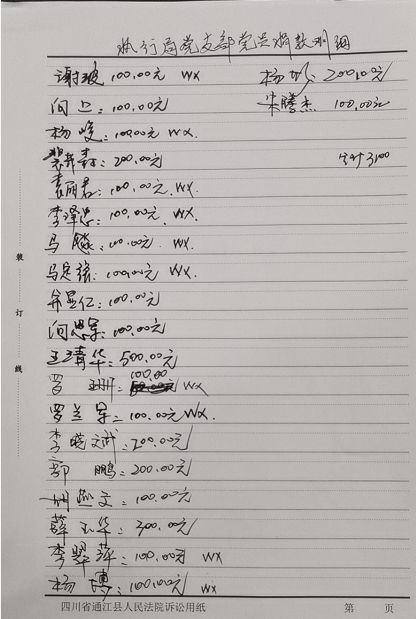 执行局党支部党员捐款明细
谢波 100.00元 WX
向上: 100.00元
杨峻: 100.00元 WX.
200.00元
袁丽君: 100.00元. WX.
李泽忠: 100.00元. WX.
马 100.00元. WX.
马定 100.00元 WX.
苟显仁: 100.00元
向思 100.00元
王清华: 500.00元
罗 100.00 WX
罗兰 : 100.00元 WX.
李晓斌: 200.00元
郭鹏: 200.00元
100.00元
薛 华: 300.00元
李翠萍: 100.00元 WX
杨博: 100.00元 WX
杨 : 200.00元
宋腾杰 100.00元
3100
装
订
线
四川省通江县人民法院诉讼用纸
第 页